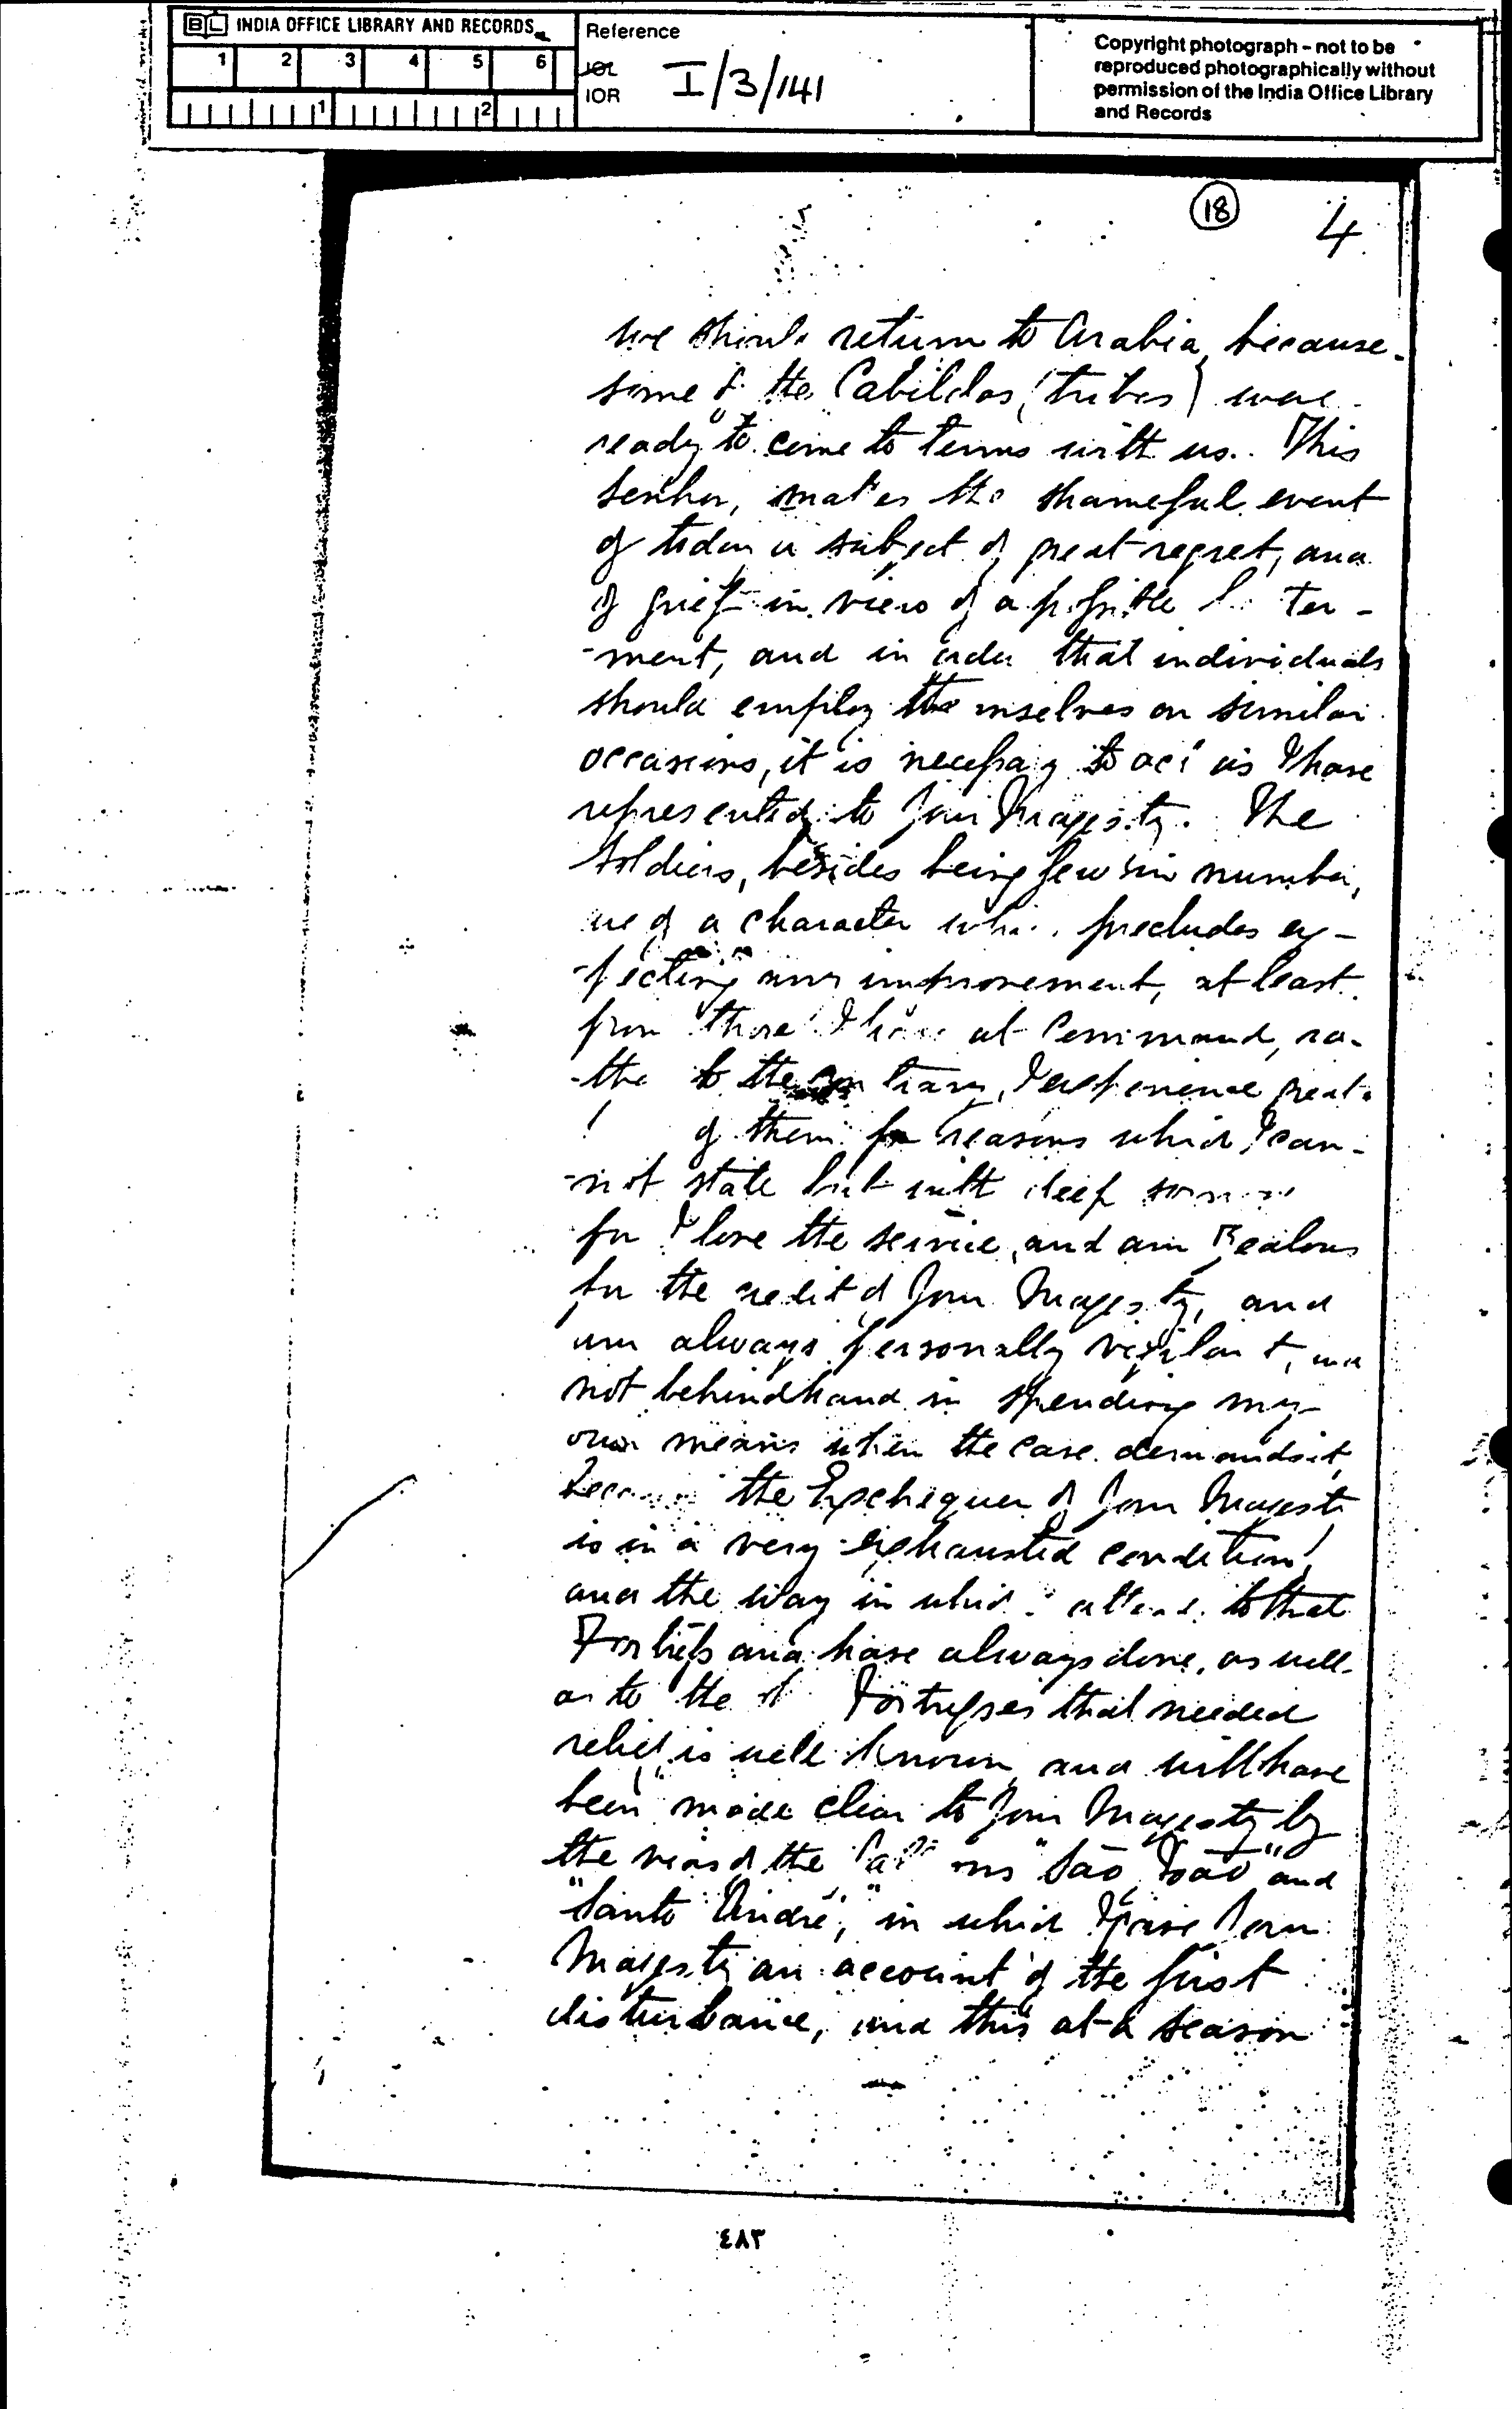 BL INDIA OFFICE LIBRARY AND RECORDS
1 2 3 4 5 6
1 2
Reference
IOL
IOR I/3/141
Copyright photograph - not to be
reproduced photographically without
permission of the India Office Library
and Records
18 4
we should return to Arabia, because
some of the Cabildas (tribes) were
ready to come to terms with us. This
Senhor, makes the shameful event
of today a subject of great regret, and
of grief in view of a possible ter-
-ment, and in order that individuals
should employ themselves on similar
occasions, it is necessary to act as I have
represented to Your Magesty. The
soldiers, besides being few in number,
are of a character which precludes ex-
-pecting any improvement, at least
from those I have at Command, ra-
-the to the contrary, I experience great
of them for reasons which I can-
-not state but with deep sorrow
for I love the service, and am zealous
for the credit of Your Magesty, and
am always personally vigilant, and
not behindhand in spending my
own means when the case demands it,
because the Exchequer of Your Magesty
is in a very exhausted condition,
and the way in which attend to that
Fortress and have always done, as well
as to the Fortresses that needed
relief, is well known and will have
been made clear to Your Magesty by
the vias of the "São João" and
"Santo André", in which I gave Your
Magesty an account of the first
disturbance, and this at a season
٤٨٣